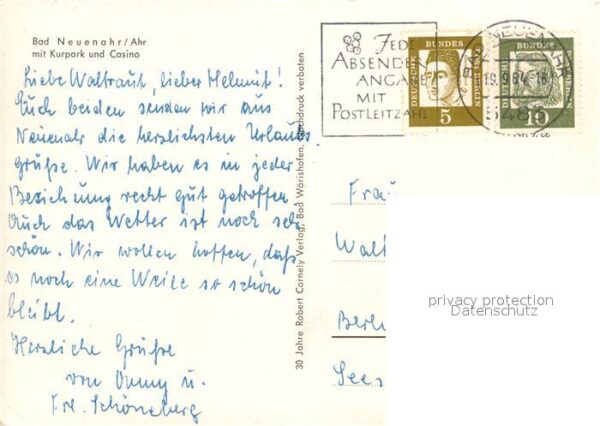 Bad Neuenahr/Ahr
mit Kurpark und Casino
Liebe Waltraut, lieber Helmut!
Euch beiden senden wir aus
Neuenahr die herzlichsten Urlaubs-
grüße. Wir haben es in jeder
Beziehung recht gut getroffen.
Auch das Wetter ist noch sehr
schön. Wir wollen hoffen, daß
es noch eine Weile so schön
bleibt.
Herzliche Grüße
von Ommy u.
Frl. Schöneberg
30 Jahre Robert Cornely Verlag, Bad Wörishofen, Nachdruck verboten
JEDE
ABSENDER
ANGABE
MIT
POSTLEITZAHL
DEUTSCHE
BUNDES
POST
5
DEUTSCHE
BUNDES
POST
10
BAD NEUENAHR
19.9.64-18
5483
Frau
Walt
Berli
Sees
privacy protection
Datenschutz